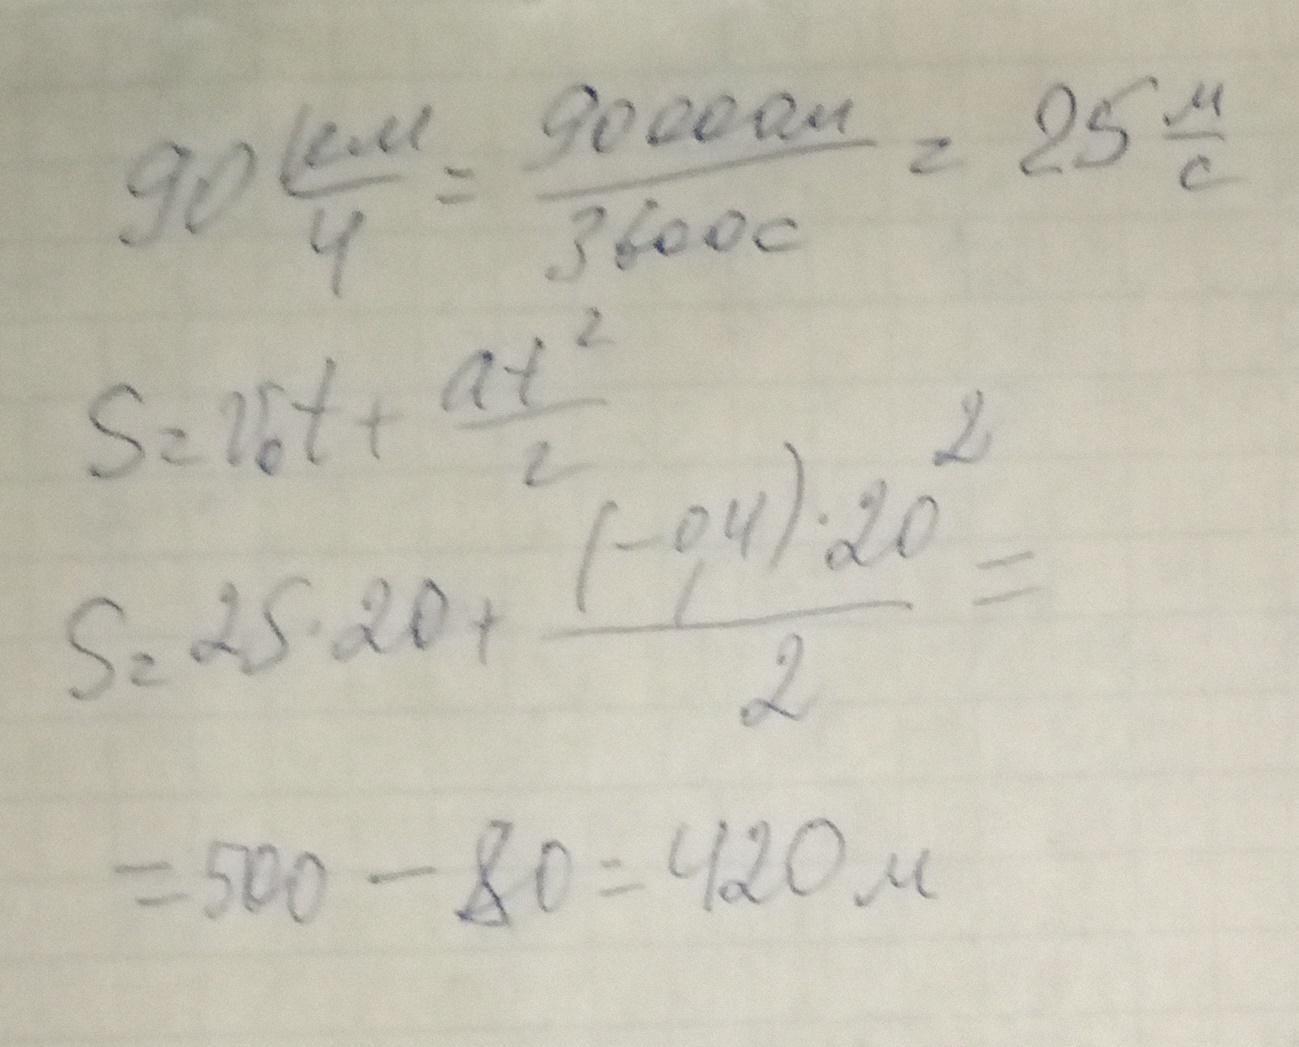 90 км/ч = 90000м/3600с = 25 м/с
S = v₀t + at²/2
S = 25·20 + (-0,4)·20²/2 =
= 500 - 80 = 420 м